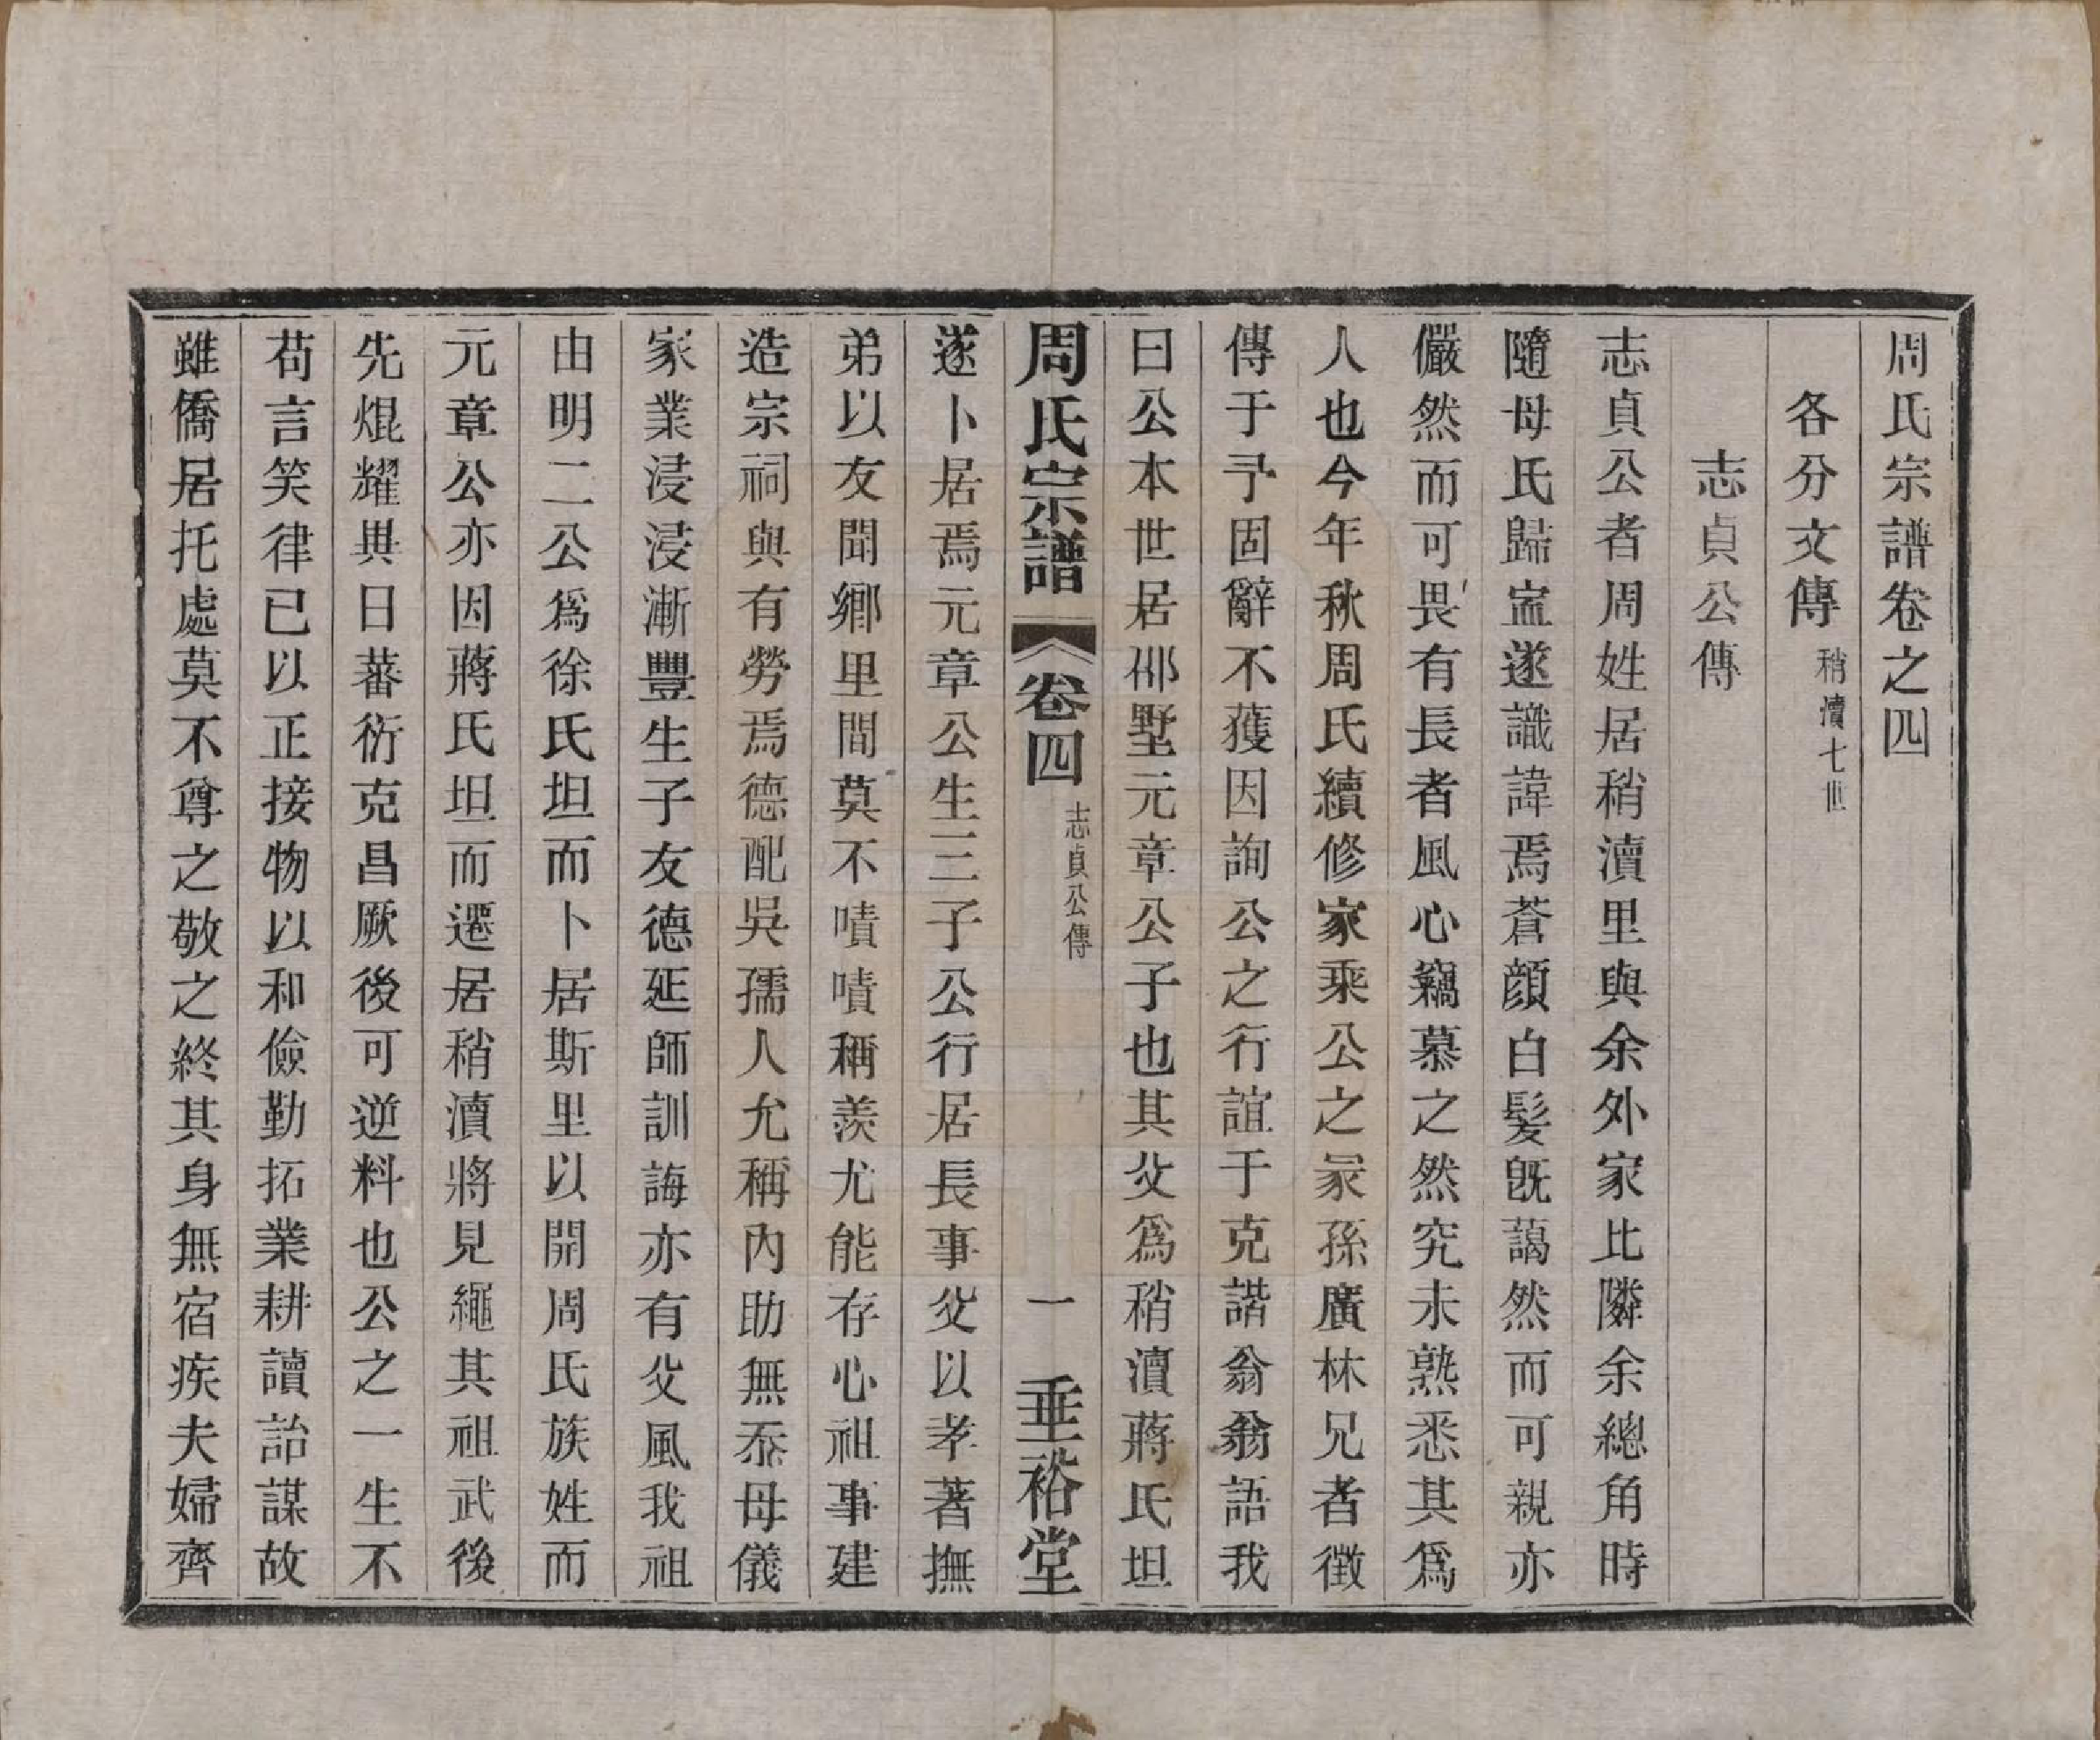 周氏宗譜卷之四
各分文傳 稍瀆七世
志貞公傳
志貞公者周姓居稍瀆里與余外家比隣余總角時
隨母氏歸寍遂識諱焉蒼顔白髮旣藹然而可親亦
儼然而可畏有長者風心竊慕之然究未熟悉其爲
人也今年秋周氏續修家乘公之冢孫廣林兄者徵
傳于予固辭不獲因詢公之行誼于克諧翁翁語我
曰公本世居邵墅元章公子也其父爲稍瀆蔣氏坦
周氏宗譜 卷四 志貞公傳 一 垂裕堂
遂卜居焉元章公生三子公行居長事父以孝著撫
弟以友聞鄉里間莫不嘖嘖稱羨尤能存心祖事建
造宗祠與有勞焉德配吳孺人允稱內助無忝母儀
家業浸浸漸豐生子友德延師訓誨亦有父風我祖
由明二公爲徐氏坦而卜居斯里以開周氏族姓而
元章公亦因蔣氏坦而遷居稍瀆將見繩其祖武後
先焜耀異日蕃衍克昌厥後可逆料也公之一生不
苟言笑律已以正接物以和儉勤拓業耕讀詒謀故
雖僑居托處莫不尊之敬之終其身無宿疾夫婦齊